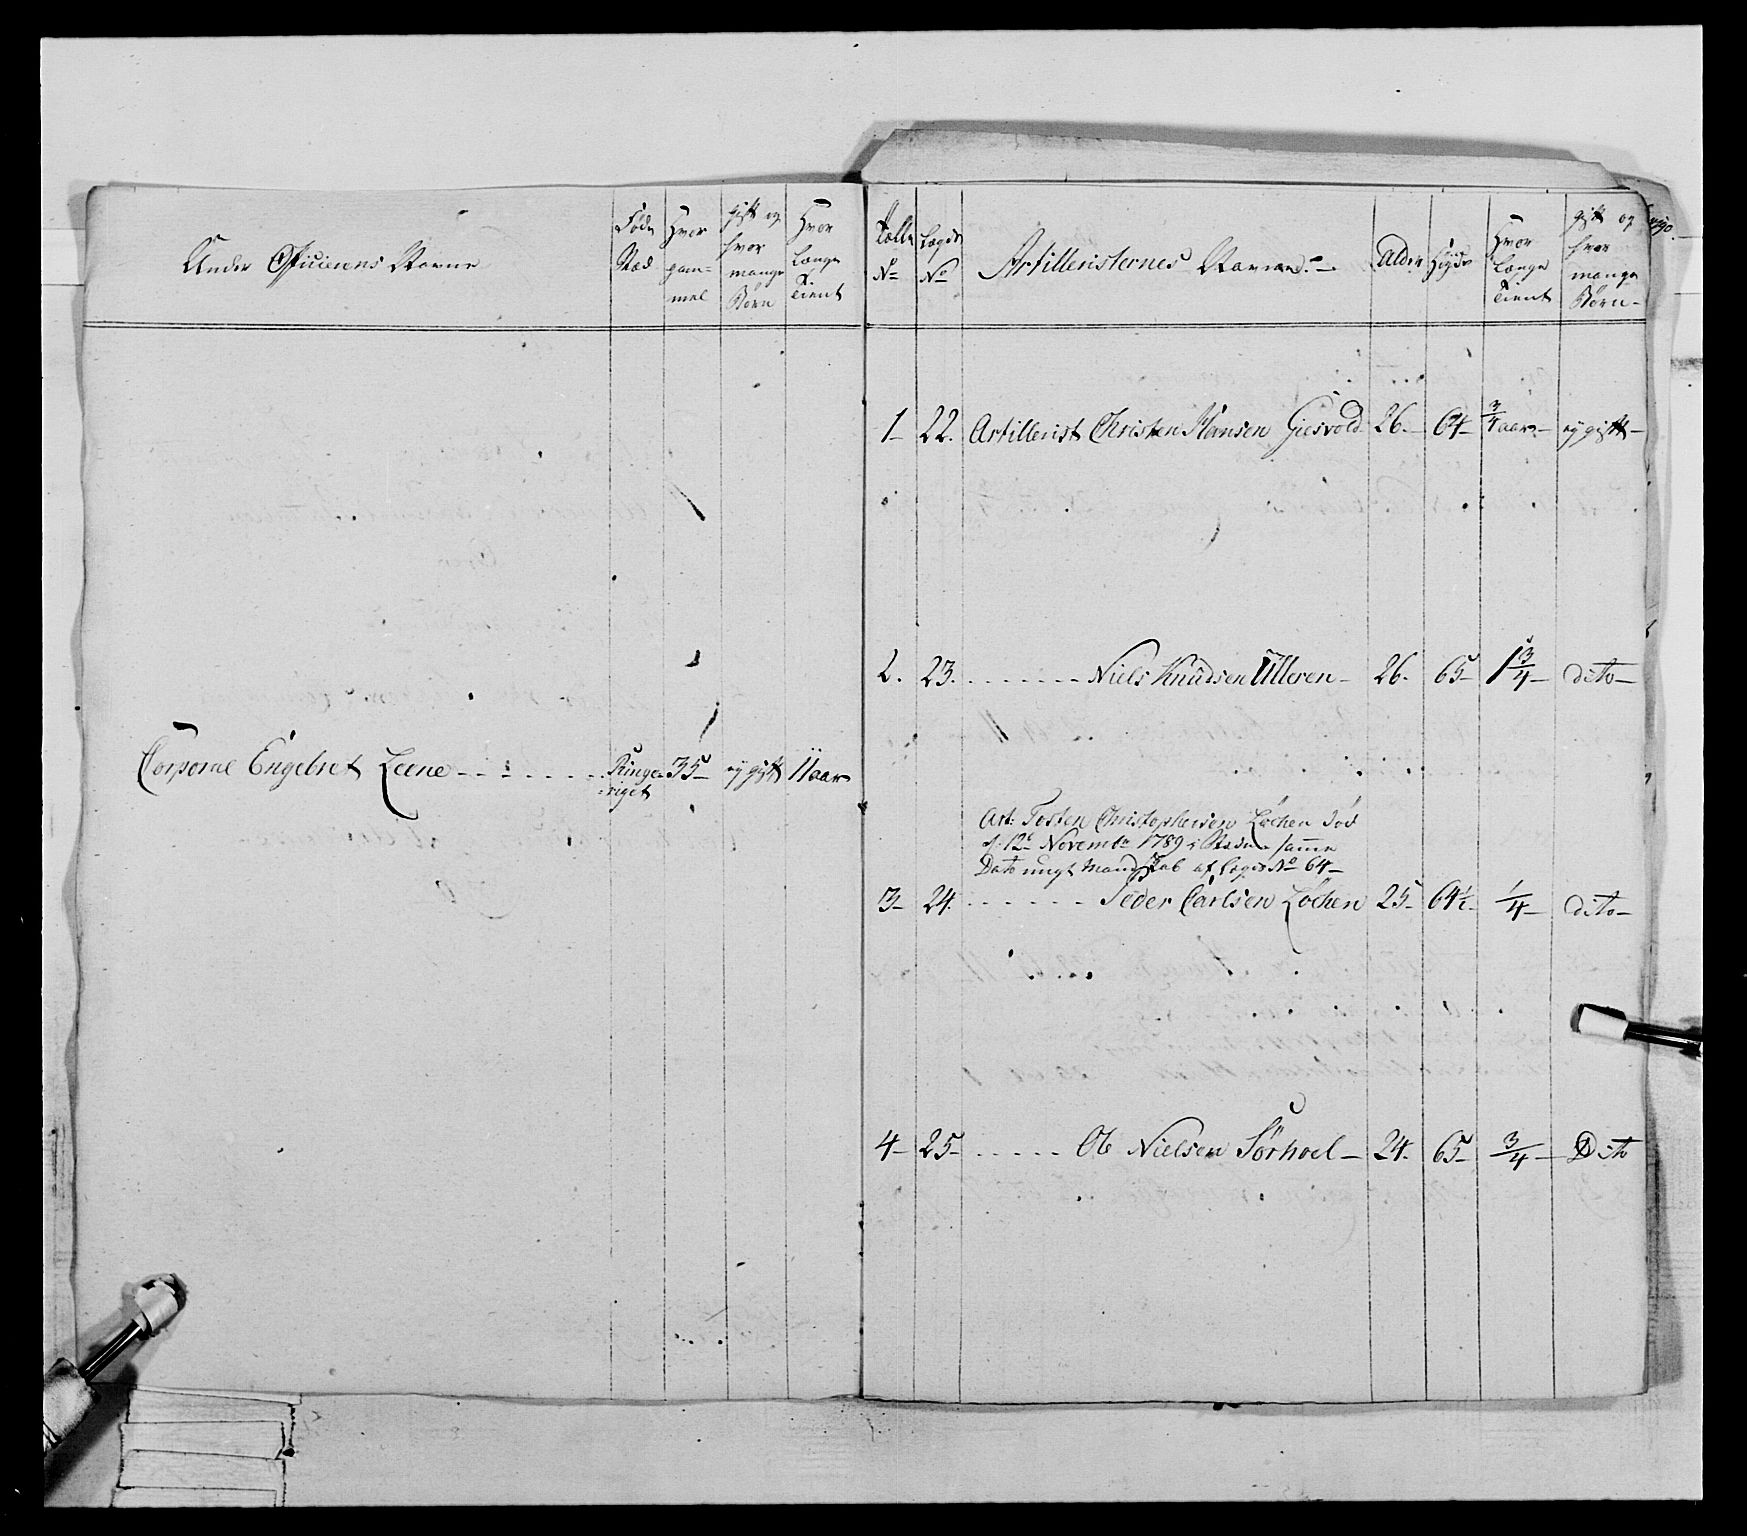 Under Officierens Navne
Føde Stæd
Hvor gam- mel
gift og hvor mange Børn
Hvor Længe Tient
Corporal Engebret Leene - - - - - - - Ringe- riget 35 - ey gift 11 aar
Rolle No
Lægds No
Artilleristernes Navne. -
Alder
Høyde
Hvor Længe Tient
gift og hvor mange Børn -
1 - 22. Artillerist Christen Hansen Giesvold 26 - 64 - 3/4 aar - ey gift -
2. 23. - - - - - - - Niels Knudsen Ulleren - 26. 65 - 1 3/4 - dito -
Art: Tosten Christophersen Løchen død
d: 12te Novembr 1789 i Stæden samme
Dato ungt Mandskab af Lægds No 64 -
3 - 24. - - - - - - Peder Carlsen Løchen 25 - 64 1/2 - 1/4 - dito -
4 - 25 - - - - - - Ole Nielsen Sørhoel - 24. 65 - 3/4 - Dito